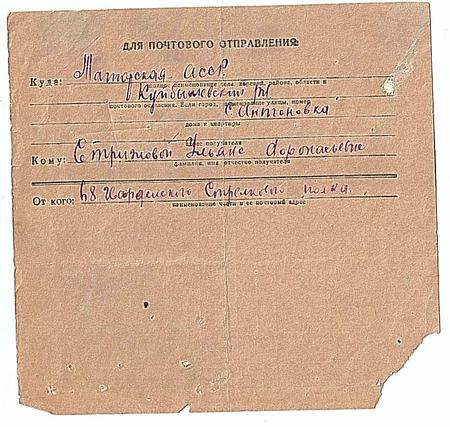 ДЛЯ ПОЧТОВОГО ОТПРАВЛЕНИЯ
Куда: Татарская АССР
наименование села, района, области и
Куйбышевский
почтового отделения. Если город, наименование улицы, номер
с. Антоновка
дома и квартиры
адрес получателя
Кому: Стрижовой Ульяне
фамилия, имя отчество получателя
От кого: 68 Гвардейского Стрелкого полка.
наименование части и ее почтовый адрес